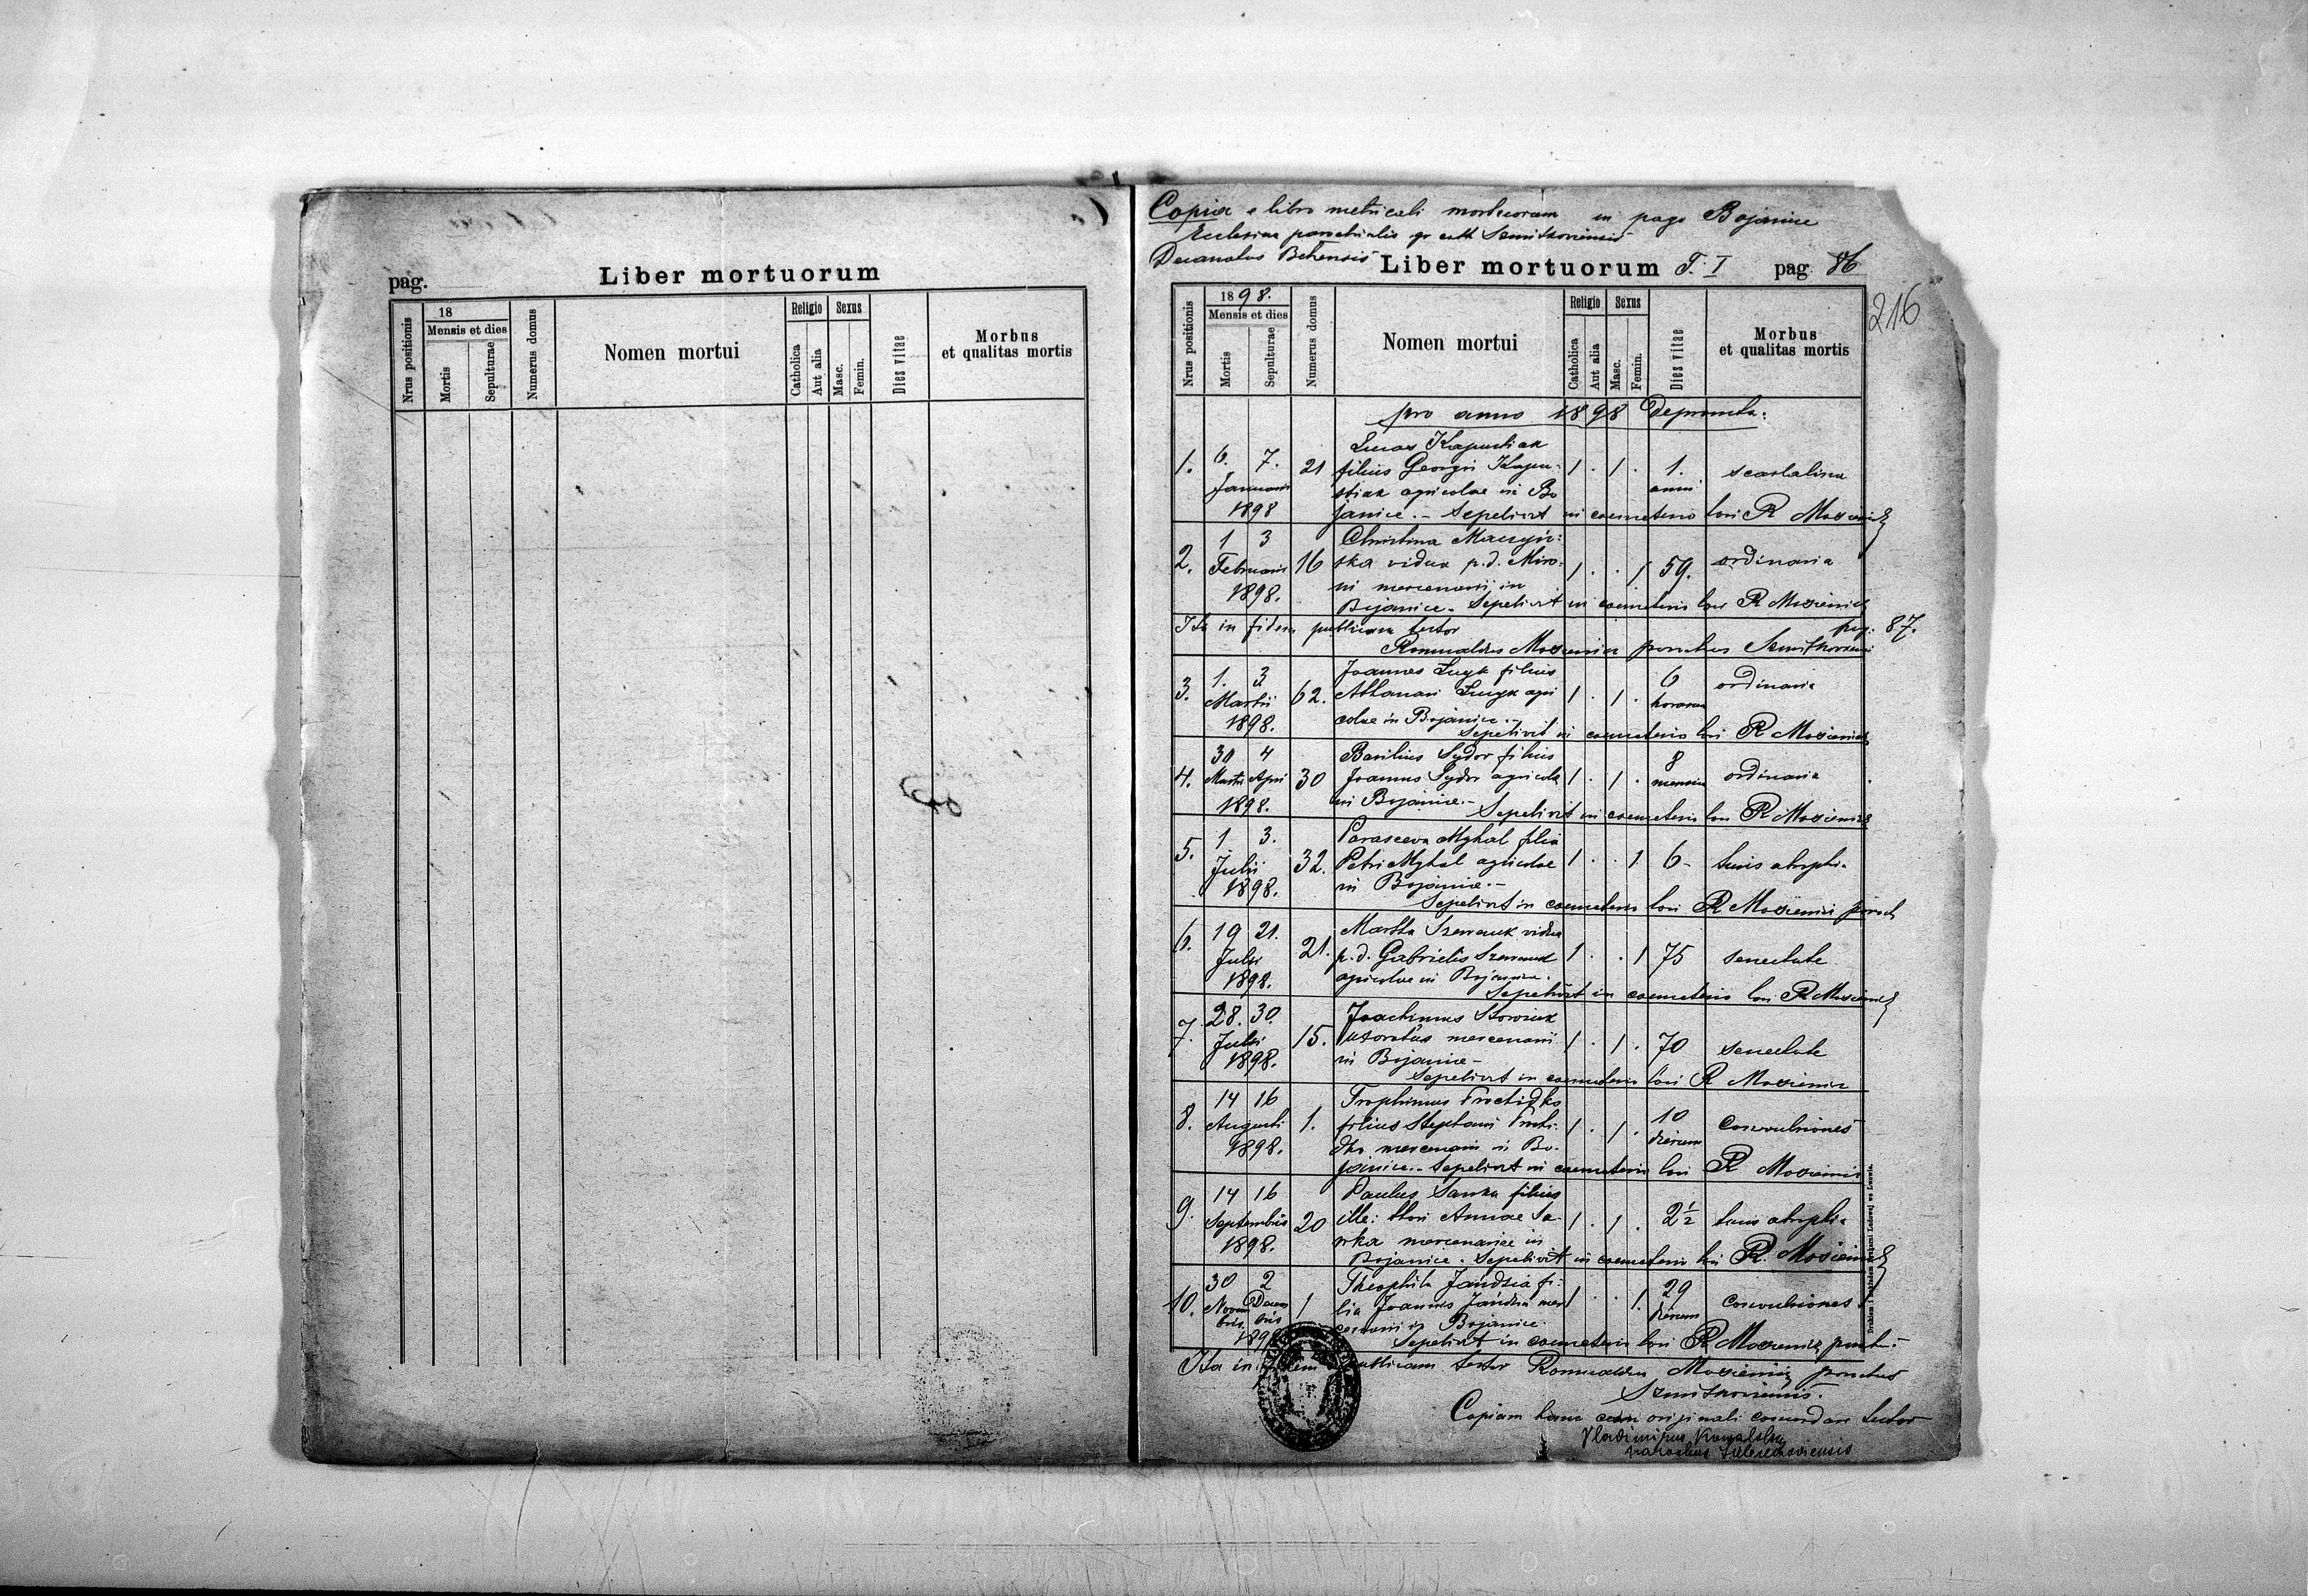 pag.
Liber mortuorum
Nrus positionis
18
Mensis et dies
Mortis
Sepulturae
Numerus domus
Nomen mortui
Religio
Catholica
Aut alia
Sexus
Masc.
Femin.
Dies vitae
Morbus
et qualitas mortis
Copia e libro metricali mortuorum in pago Bojanice
Ecclesiae parochialis gr cath
Decanatus
Liber mortuorum T. I pag 86
216
Nrus positionis
1898.
Mensis et dies
Mortis
Sepulturae
Numerus domus
Nomen mortui
Religio
Catholica
Aut alia
Sexus
Masc.
Femin.
Dies vitae
Morbus
et qualitas mortis
pro anno 1898
Lucas Kapustiak
1. 6. 7. 21 filius Georgii Kapu- 1 . 1 . 1. scarlatina
Januarii stiak agricolae in Bo anni
1898 janice. – Sepelivit in coemeterio loci R
1 3 Christina
2. Februarii 16 ska vidua p. d. Miro- 1 . . 1 59. ordinaria
1898. ni mercenarii in
Bojanice – Sepelivit in coemeterio loci R
Ita in fidem publicam testor pag: 87.
Romualdus parochus
1. 3 Joannes filius 6 ordinaria
3. Martii 62. Athanasii agri 1 . 1 . horarum
1898. colae in Bojanice –
Sepelivit in coemeterio loci R
30 4 Basilius Sydor filius 8
4. Martii Apri 30 Joannis Sydor agricolae 1 . 1 . mensium ordinaria
1898. in Bojanice. –
Sepelivit in coemeterio loci R
1 3. Parasceva Myhal filia
5. Julii 32. Petri Myhal agricolae 1 . . 1 6 –
1898. in Bojanice. –
Sepelivit in coemeterio loci R
19 21. Martha vidua
6. Julii 21. p. d. Gabrielis 1 . . 1 75 senectute
1898. agricolae in Bojanice.
Sepelivit in coemeterio loci R
28. 30. Joachimus
7. Julii 15. uxoratus mercenarii 1 . 1 . 70 senectute
1898. in Bojanice –
Sepelivit in coemeterio loci R
14 16 Trophimus 10
8. Augusti 1. filius Stephani 1 . 1 . dierum convulsiones
1898. mercenarii in Bo-
janice. – Sepelivit in coemeterio loci R
14 16 Paulus Sawka filius
9. Septembris 20 ille: thori Annae Sa- 1 . 1 . 2½
1898. wka mercenariae in
Bojanice. Sepelivit in coemeterio loci R.
30 2 Theophila Jandzia fi- 29
10. Novem Decem 1 lia Joannis Jandzia mer 1 . . 1. dierum convulsiones
bris bris cenarii in Bojanice.
1898 Sepelivit in coemeterio loci R
Ita in fidem publicam testor Romualdus parochus
Copiam hanc cum originali concordare testor
Vladimirus Kowalsky
parochus